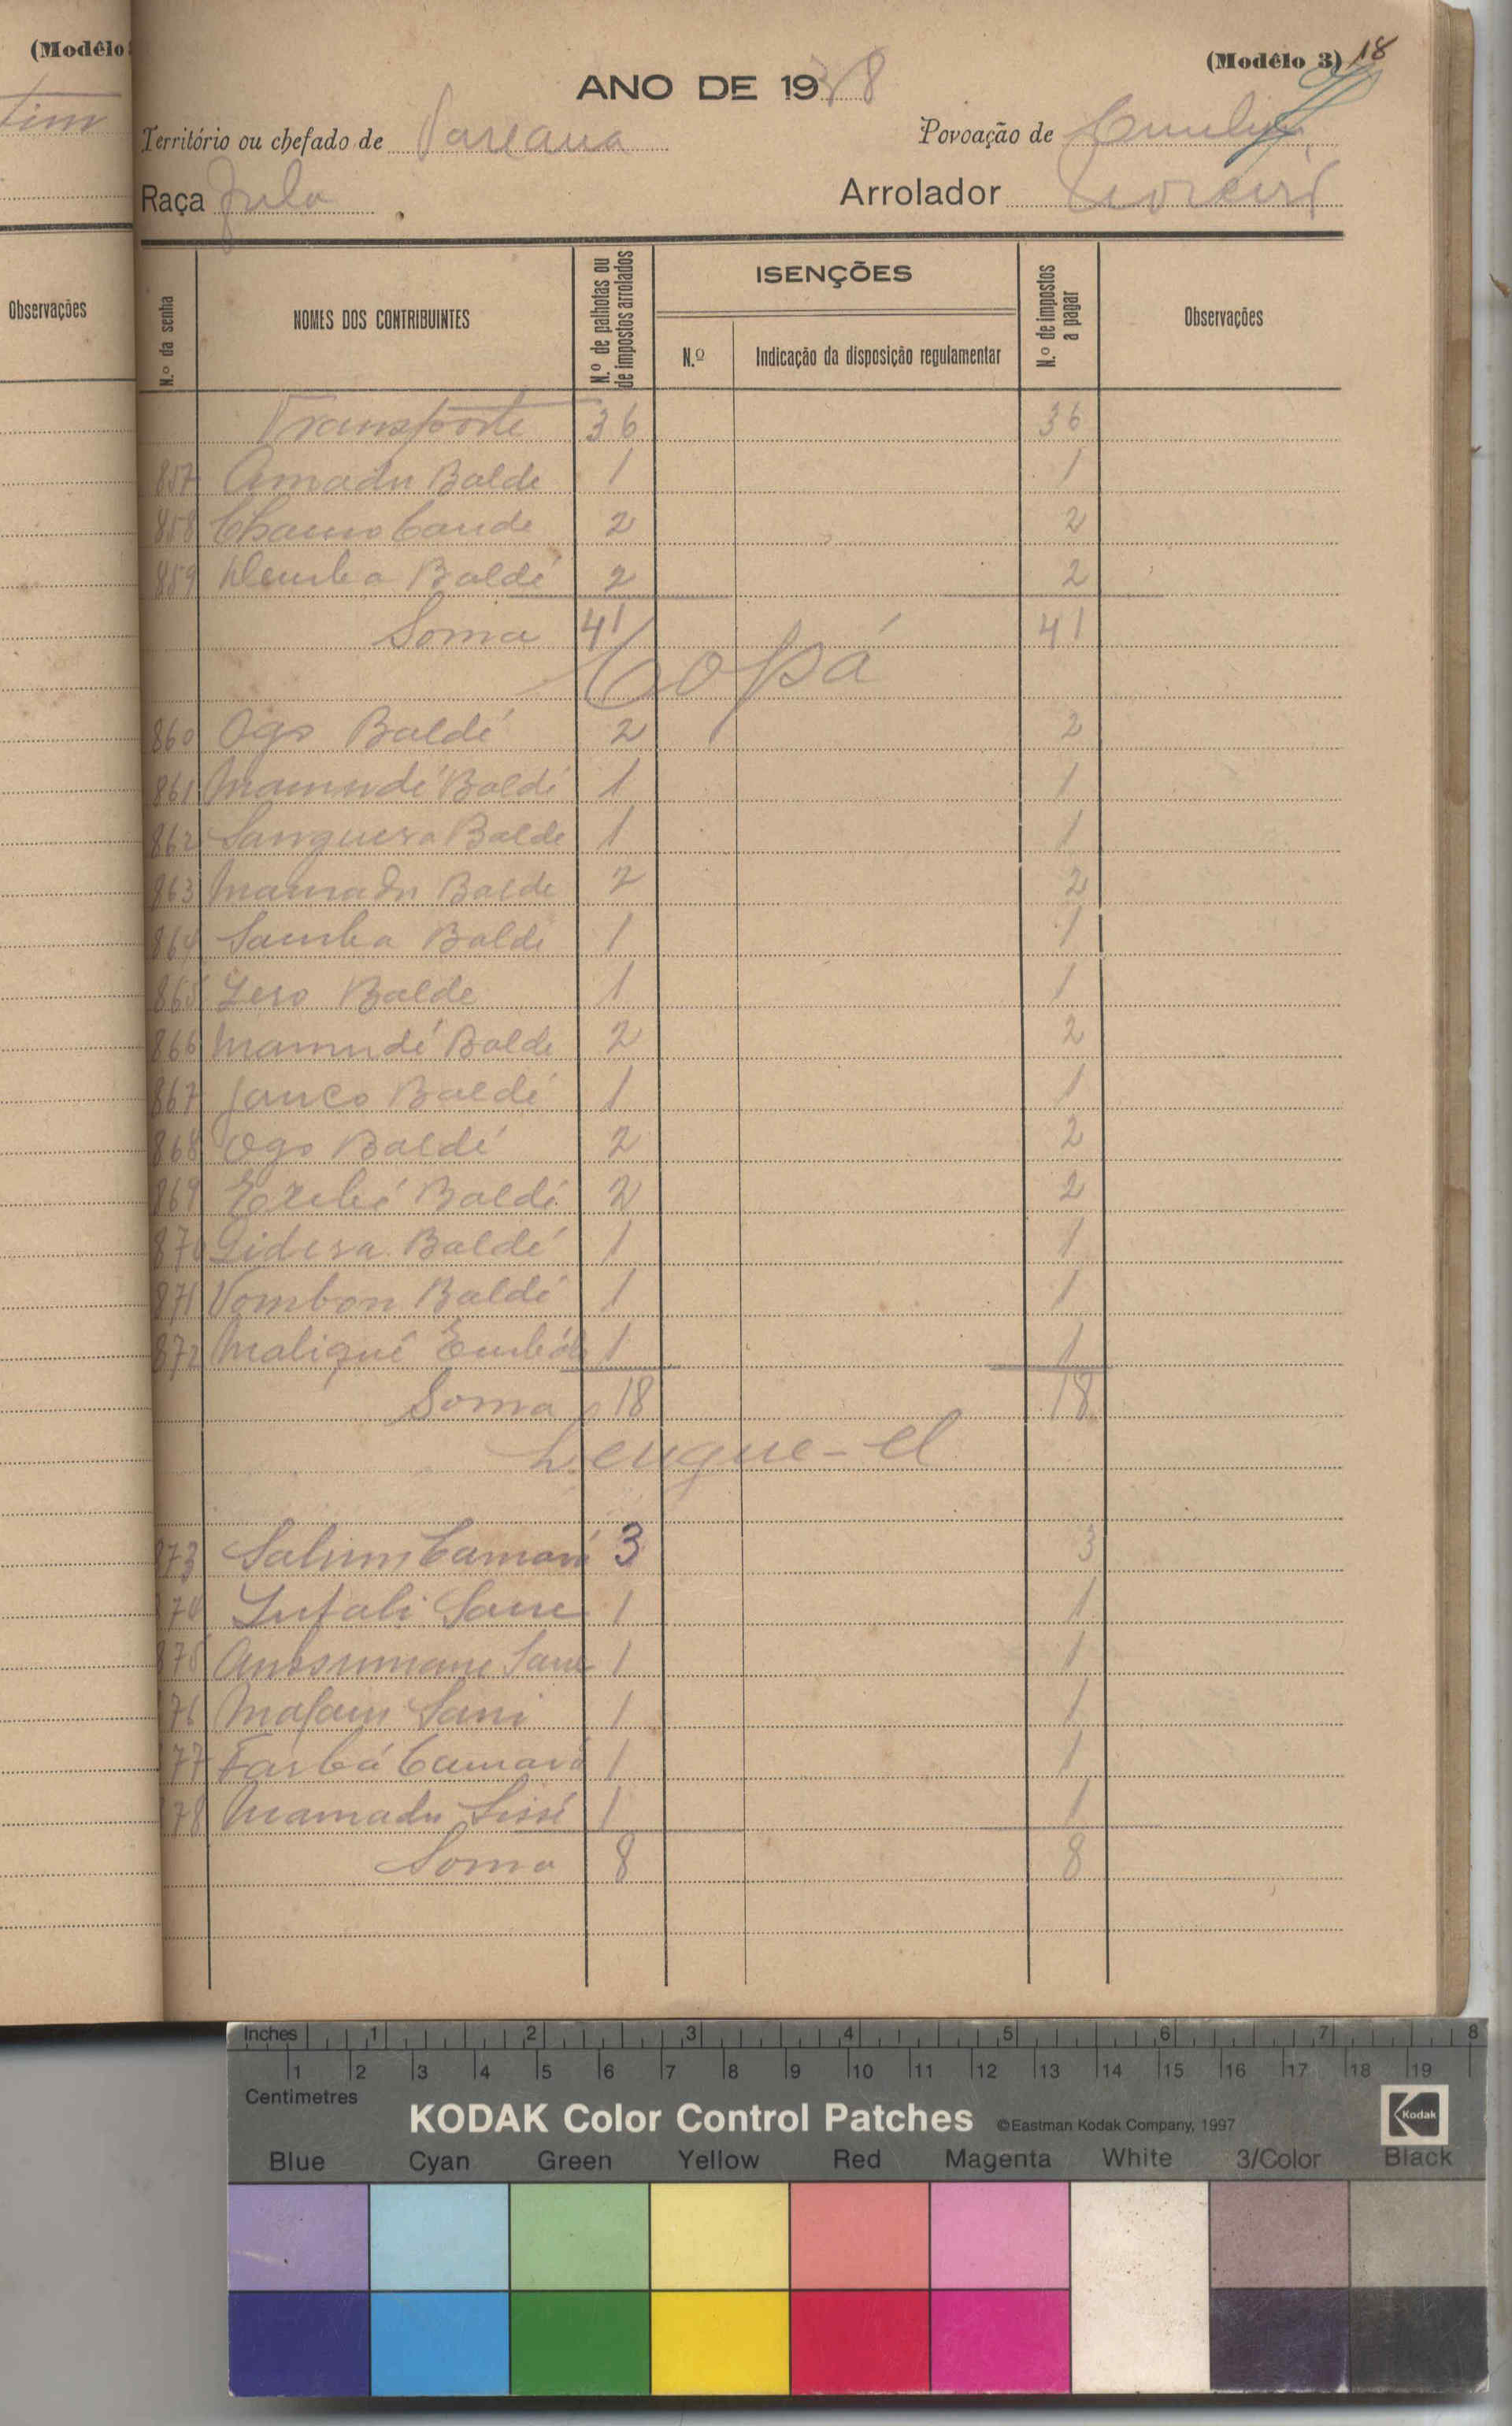 (Modêlo
(Modêlo 3) 18
ANO DE 1938
Território ou chefado de Povoação de
Raça Fula Arrolador
Observações
N.º da senha
NOMES DOS CONTRIBUINTES
N.º de palhotas ou de impostos arrolados
ISENÇÕES
N.º
Indicação da disposição regulamentar
N.º de impostos a pagar
Observações
Transporte 36 36
857 Amadu Balde 1 1
858 Chamo Cande 2 2
859 Demba Baldé 2 2
Soma 41 41
Copá
860 Ogo Baldé 2 2
861 Mamudé Baldé 1 1
862 Sanguera Balde 1 1
863 Mamadu Balde 2 2
864 Samba Balde 1 1
865 Iero Balde 1 1
866 Mamudé Balde 2 2
867 Janco Baldé 1 1
868 Ogo Baldé 2 2
869 Baldé 2 2
870 Gidera Baldé 1 1
871 Vombon Baldé 1 1
872 Maliqué Embaló 1 1
Soma 18 18
Lengue-el
873 Salum Camará 3 3
874 Infali Sane 1 1
875 Anssumane Sane 1 1
76 Malam Sani 1 1
77 Farbá Camará 1 1
78 Mamadu Sissé 1 1
Soma 8 8
Inches 1 2 3 4 5 6 7 8
1 2 3 4 5 6 7 8 9 10 11 12 13 14 15 16 17 18 19
Centimetres
KODAK Color Control Patches ©Eastman Kodak Company, 1997 Kodak
Blue Cyan Green Yellow Red Magenta White 3/Color Black